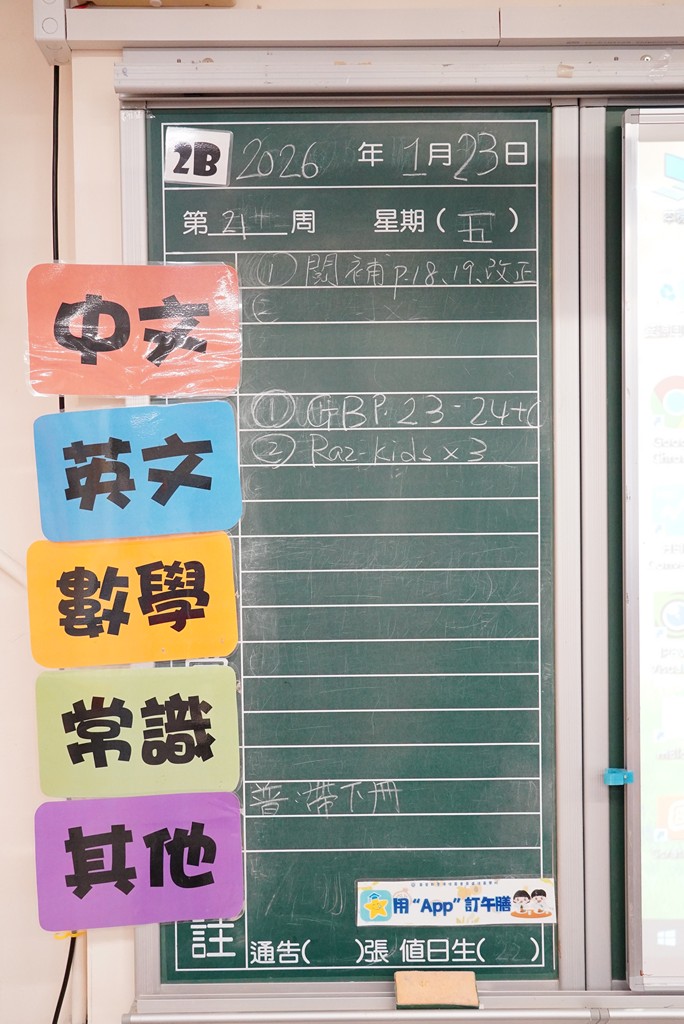 2B 2026 年 1 月 23 日
第 21 周 星期( 五 )
中文
① 閱補 p.18、19、改正
英文
① GBP. 23-24+C
② Raz-kids x 3
數學
常識
其他
普：帶下冊
用“App”訂午膳
註
通告( )張 值日生( 22 )